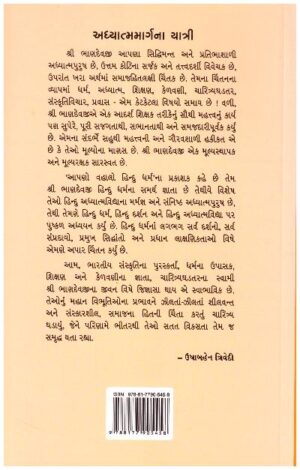 અધ્યાત્મમાર્ગના યાત્રી
શ્રી ભાણદેવજી આપણા સિદ્ધિમન્ત અને પ્રતિભાશાળી
અધ્યાત્મપુરુષ છે, ઉત્તમ કોટિના સર્જક અને તત્ત્વદર્શી વિવેચક છે,
ઉપરાંત ખરા અર્થમાં સમાજહિતલક્ષી ચિંતક છે. તેમના ચિંતનના
વ્યાપમાં ધર્મ, અધ્યાત્મ, શિક્ષણ, કેળવણી, ચારિત્ર્યઘડતર,
સંસ્કૃતિવિચાર, પ્રવાસ - એમ કેટકેટલા વિષયો સમાય છે ! વળી,
શ્રી ભાણદેવજીએ એક આદર્શ શિક્ષક તરીકેનું સૌથી મહત્ત્વનું કાર્ય
પણ સુપેરે, પૂરી સજગતાથી, સભાનતાથી અને સમજદારીપૂર્વક કર્યું
છે. એમના સંદર્ભે સહુથી મહત્ત્વની અને ગૌરવશાળી હકીકત એ
છે કે તેઓ મૂલ્યોના માણસ છે. શ્રી ભાણદેવજી એક મૂલ્યસ્થાપક
અને મૂલ્યરક્ષક સારસ્વત છે.
'આપણો વહાલો હિન્દુ ધર્મ'ના પ્રકાશક કહે છે તેમ
શ્રી ભાણદેવજી હિન્દુ ધર્મના સમર્થ જ્ઞાતા છે તેથીયે વિશેષ
તેઓ હિન્દુ અધ્યાત્મવિદ્યાના મર્મજ્ઞ અને સંનિષ્ઠ અધ્યાત્મપુરુષ છે,
તેથી તેમણે હિન્દુ ધર્મ, હિન્દુ દર્શન અને હિન્દુ અધ્યાત્મવિદ્યા પર
પુષ્કળ અધ્યયન કર્યું છે. હિન્દુ ધર્મનાં લગભગ સર્વ દર્શનો, સર્વ
સંપ્રદાયો, પ્રમુખ સિદ્ધાંતો અને પ્રધાન લાક્ષણિકતાઓ વિષે
એમણે અપાર ચિંતન કર્યું છે.
આમ, ભારતીય સંસ્કૃતિના પુરસ્કર્તા, ધર્મના ઉપાસક,
શિક્ષણ અને કેળવણીના જ્ઞાતા, ચારિત્ર્યઘડતરના સ્વામી
શ્રી ભાણદેવજીના જીવન વિષે જિજ્ઞાસા થાય એ સ્વાભાવિક છે.
તેઓનું મહાન વિભૂતિઓના પ્રભાવને ઝીલતાં-ઝીલતાં શીલવન્ત
અને સંસ્કારશીલ, સમાજના હિતની ચિંતા કરતું ચારિત્ર્ય
ઘડાયું, જેને પરિણામે ભીતરથી તેઓ સતત વિકસતા તેમ જ
સમૃદ્ધ થતા રહ્યા.
- ઉષાબહેન ત્રિવેદી
ISBN : 978-81-7790-545-8
9 788177 905458